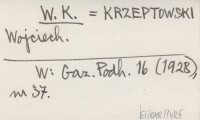 W. K. = KRZEPTOWSKI
Wojciech.
W: Gaz. Podh. 16 (1928),
nr 37.